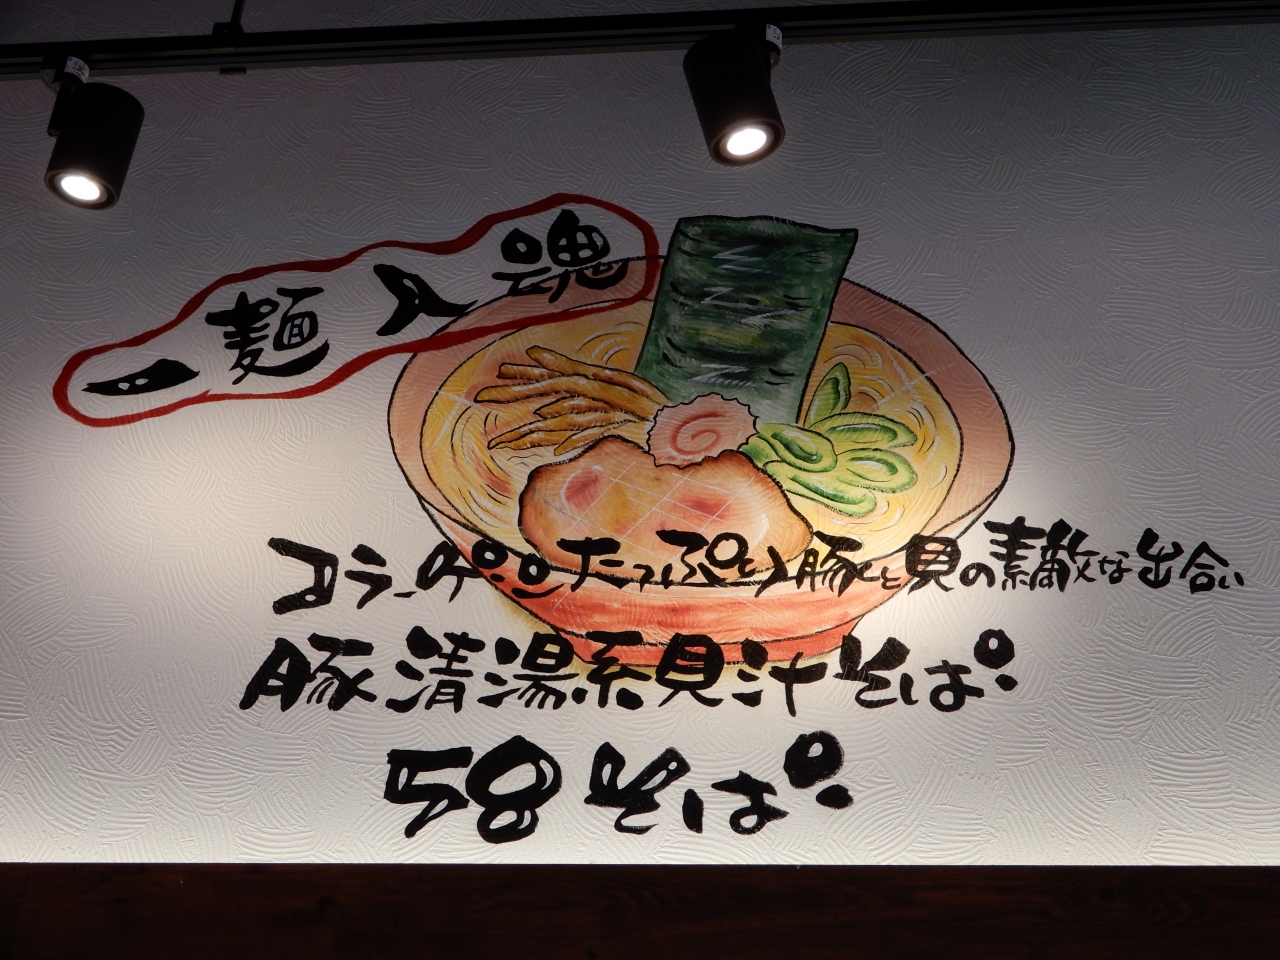 一麺入魂
コラーゲンたっぷり豚と貝の素敵な出合い
豚清湯系貝汁そば。
58そば。